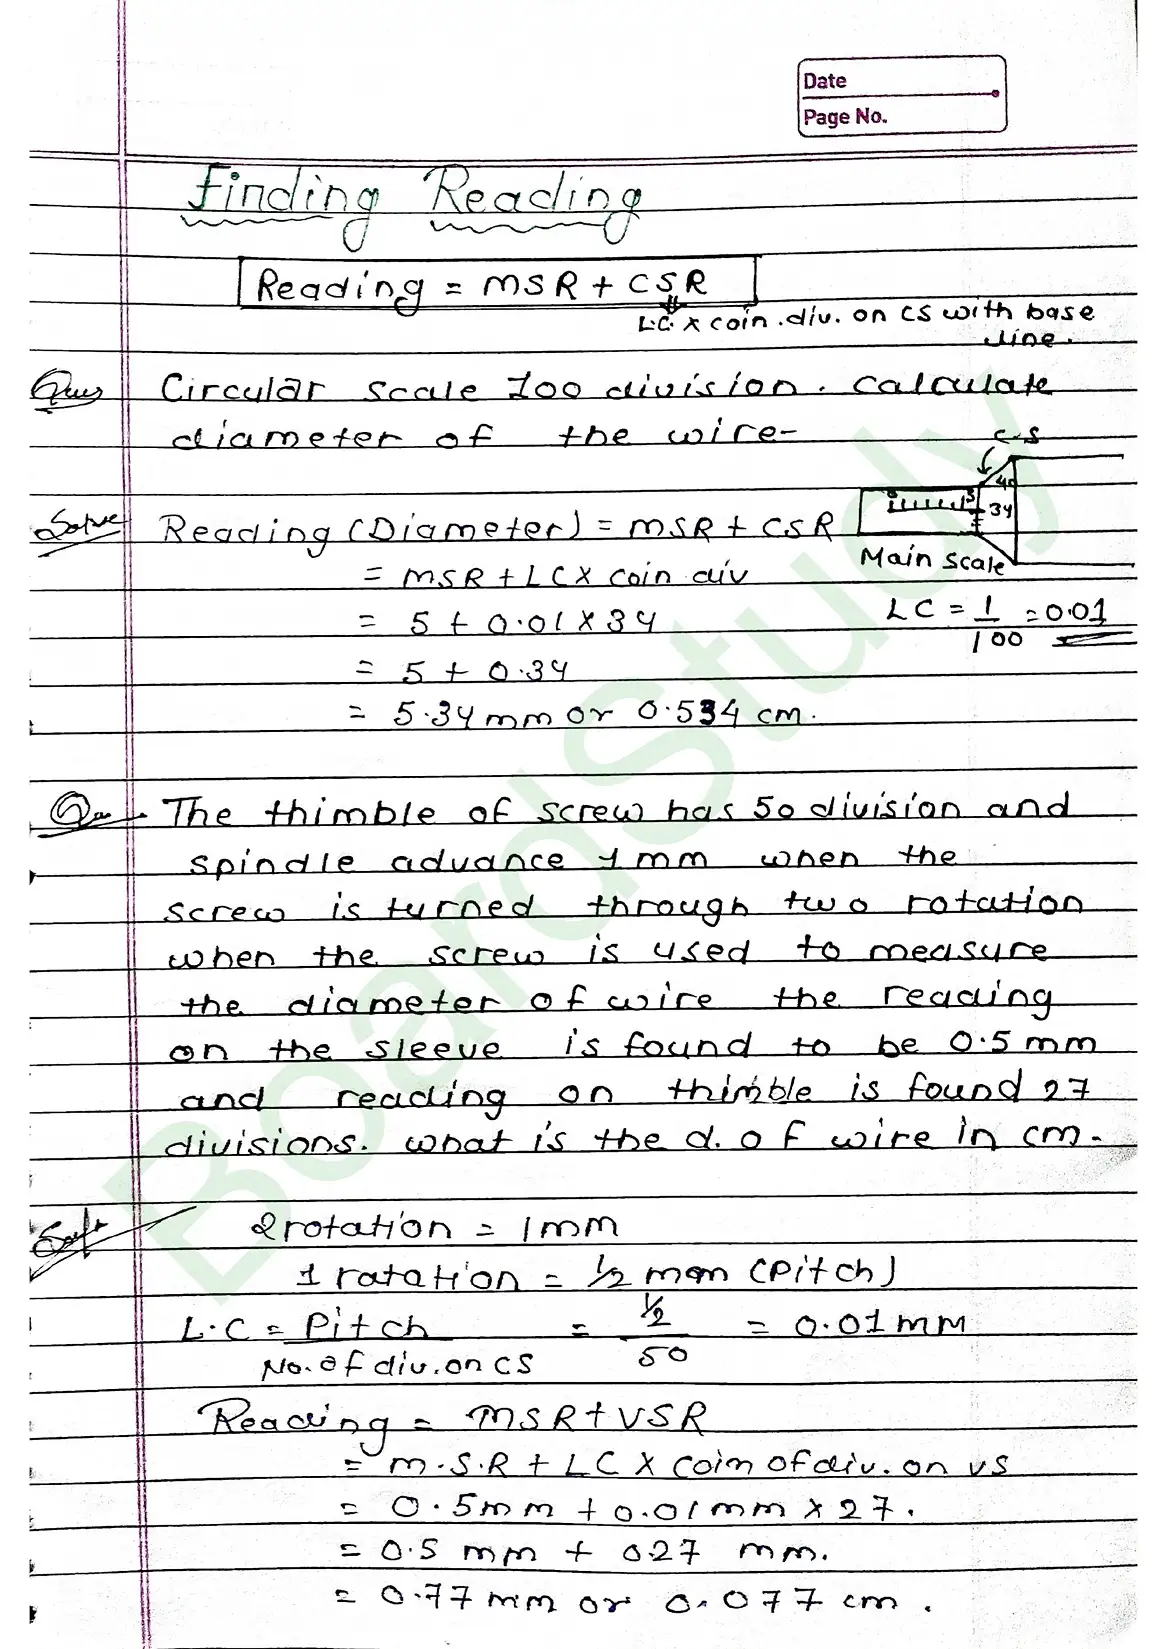 Date
Page No.
Finding Reading
Reading = MSR + CSR
L.C. x coin. div. on CS with base
line.
Ques Circular scale 100 division. calculate
diameter of the wire-
C.S
40
Solve Reading (Diameter) = MSR + CSR
0 5 34
Main Scale
= MSR + LC x coin div
= 5 + 0.01 x 34
LC = 1/100 = 0.01
= 5 + 0.34
= 5.34 mm or 0.534 cm.
Qu The thimble of screw has 50 division and
spindle advance 1 mm when the
screw is turned through two rotation
when the screw is used to measure
the diameter of wire the reading
on the sleeve is found to be 0.5 mm
and reading on thimble is found 27
divisions. what is the d. of wire in cm.
2 rotation = 1 mm
1 ratation = 1/2 mm (Pitch)
L.C = Pitch / No. of div. on CS = 1/2 / 50 = 0.01 mm
Reading = MSR + VSR
= M.S.R + LC x coin of div. on VS
= 0.5 mm + 0.01 mm x 27.
= 0.5 mm + 0.27 mm.
= 0.77 mm or 0.077 cm.
BoardStudy